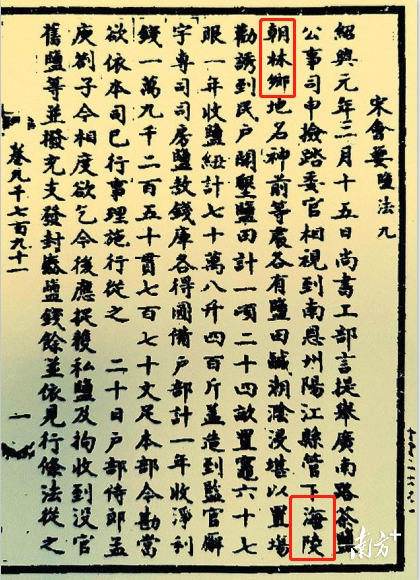 宋會要鹽法九
紹興元年二月十五日尚書工部言提舉廣南路茶鹽
公事司申檢踏委官相視到南恩州陽江縣管下海陵
朝林鄉地名神前等處各有鹽田鹹潮渰浸堪以置場
勸誘到民戶開墾鹽田計一頃二十四畝置竈六十七
眼一年收鹽紐計七十萬八千四百斤蓋造到監官廨
宇專司司房鹽敖錢庫各得圓備戶部計一年收淨利
錢一萬九千二百五十貫七百七十文足本部今勘當
欲依本司已行事理施行從之 二十日戶部侍郎孟
庾劉子今相度欲乞今後應捉獲私鹽及拘收到沒官
舊鹽等並撥充支發封樁鹽錢餘並依見行條法從之
卷九千七百九十一
一
南方+